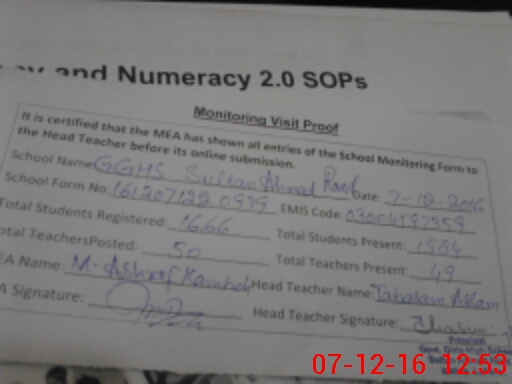 and Numeracy 2.0 SOPs
Monitoring Visit Proof
It is certified that the MEA has shown all entries of the School Monitoring Form to
the Head Teacher before its online submission.
School Name: GGHS Sultan Ahmad Date: 7-12-2016
School Form No: EMIS Code:
Total Students Registered: 1666 Total Students Present: 1584
Total Teachers Posted: 50 Total Teachers Present: 49
MEA Name: M. Ashraf Kamboh Head Teacher Name: Tabasam Aslam
MEA Signature: Head Teacher Signature:
Principal
07-12-16 12:53